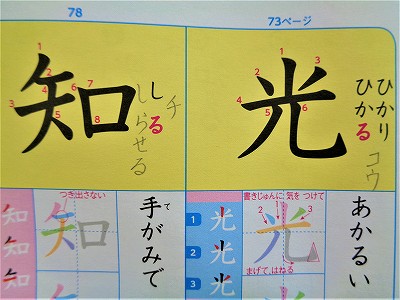 73ページ
光
1
2
3
4
5
6
ひかり
ひかる
コウ
あかるい
書きじゅんに気をつけて
光
1
2
3
まげて、はねる
1
光
2
光
3
光
78
知
1
2
3
4
5
6
7
8
しる
しらせる
チ
手がみで
て
つき出さない
知口
知
知
知